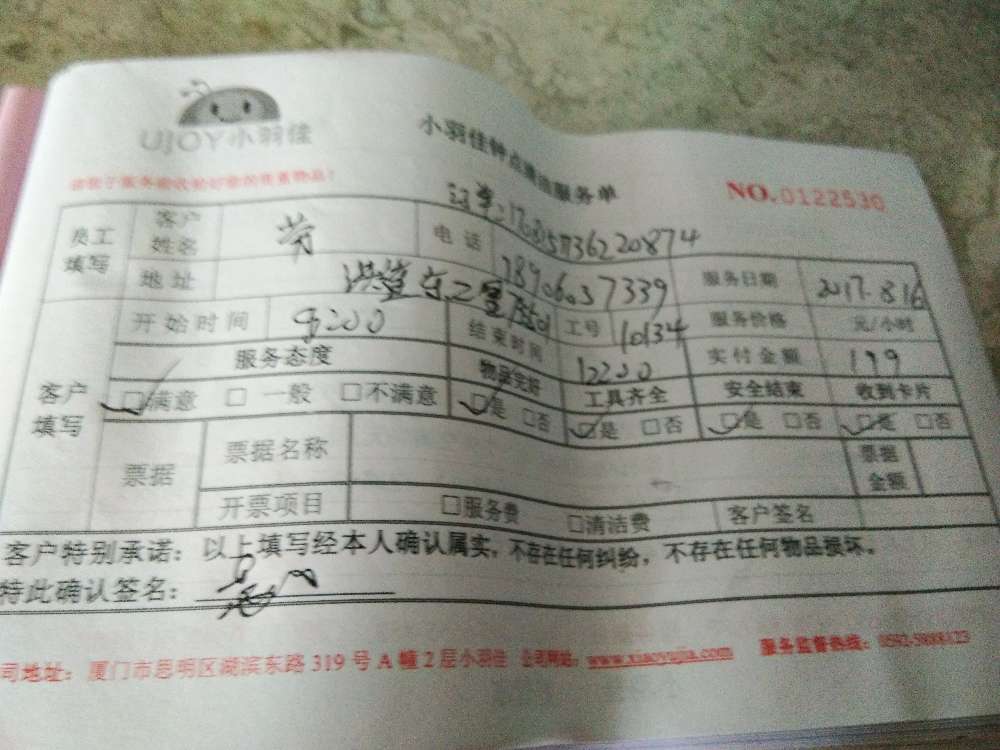 UJOY小羽佳
小羽佳钟点清洁服务单
NO.0122530
员工填写 客户姓名 劳 电话
地址 服务日期 2017.8.16
开始时间 9:00 结束时间 工号 10134 服务价格 元/小时
服务态度 物品完好 12:00 实付金额 199
客户填写 □满意 □一般 □不满意 □是 □否 工具齐全 安全结束 收到卡片
□是 □否 □是 □否 □是 □否
票据 票据名称 票据金额
开票项目 □服务费 □清洁费 客户签名
客户特别承诺:以上填写经本人确认属实,不存在任何纠纷,不存在任何物品损坏。
特此确认签名:
司地址:厦门市思明区湖滨东路319号A幢2层小羽佳 公司网站:www.xiaoyujia.com 服务监督热线: